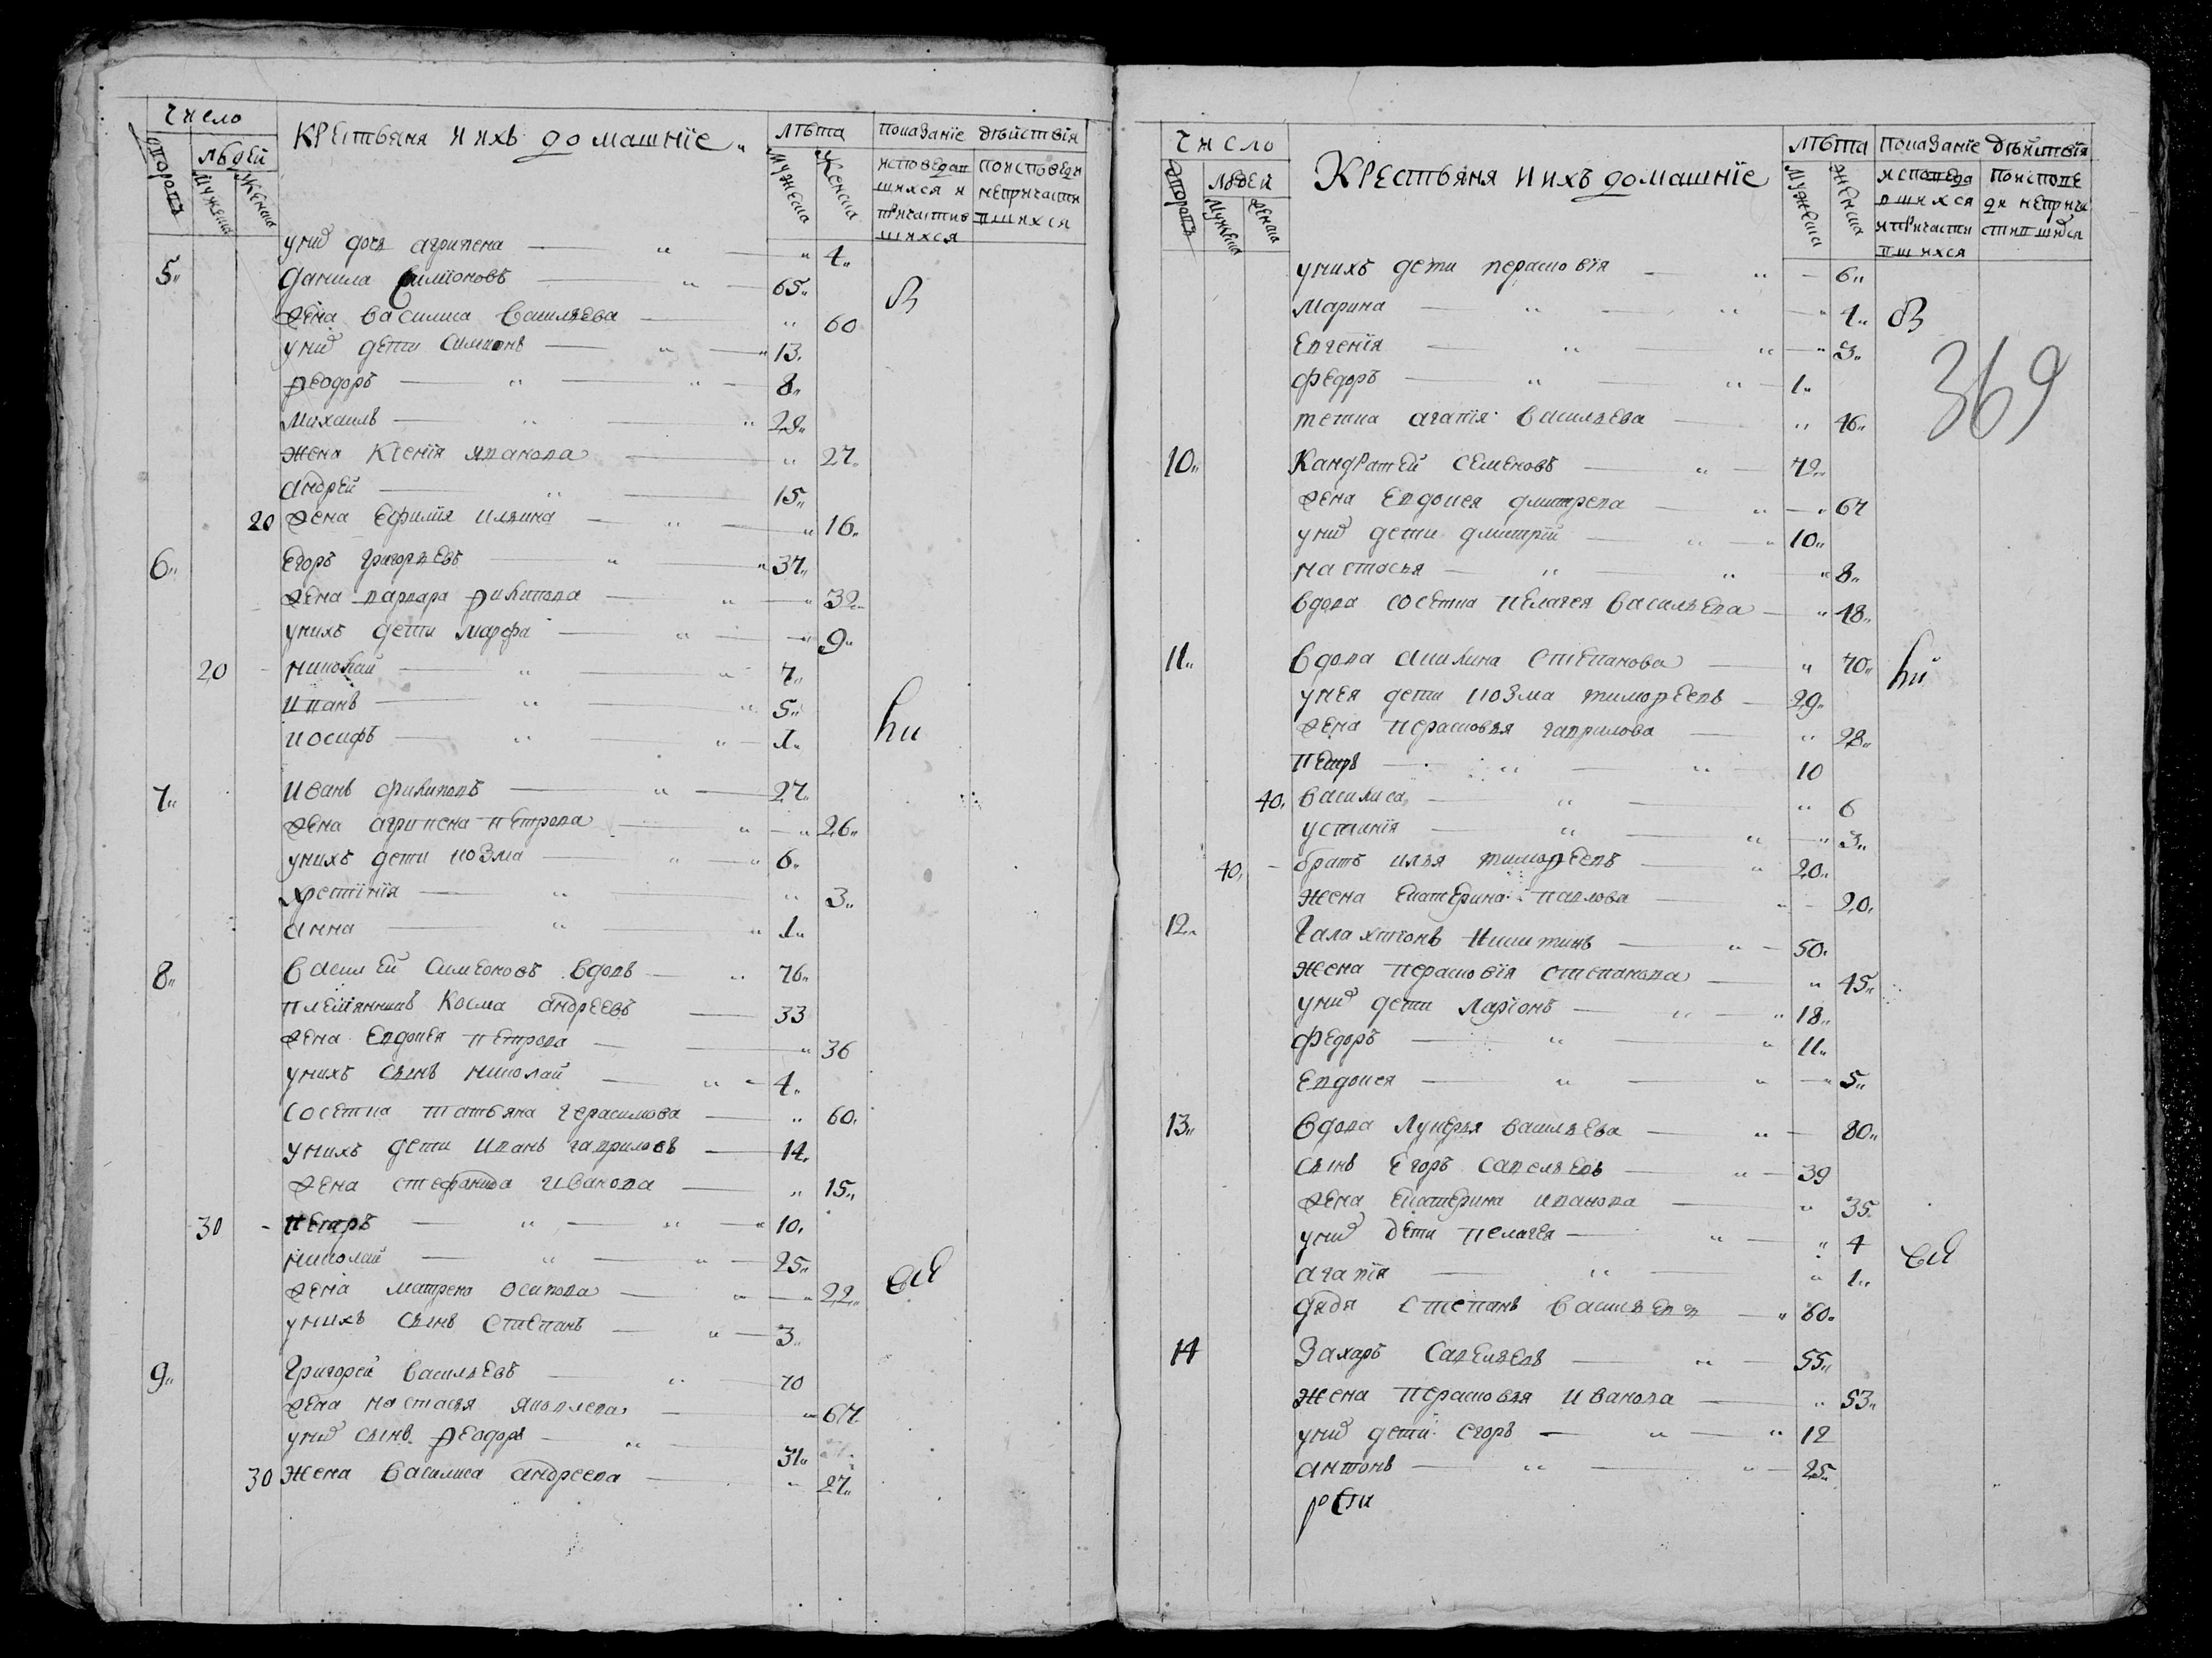 Число
КРЕСТЬЯНЯ И ИХЪ ДОМАШНІЕ
Лѣта
Показаніе дѣйствія
дворовъ
Людей
мужеска
женска
мужеска
женска
исповедав
шихся и
причастив
шихся
по исповеди
непричасти
вшихся
у нихъ дочь агрипена " " 4"
5" Данила Симіоновъ " 65"
жена василиса васильева " 60
у нихъ дети Симионъ " 13.
Феодоръ " " 8"
Михаилъ " " 28"
жена Ксенія Иванова " 27"
андрей " 15"
20 жена Ефимія ильина " " 16"
6" Егоръ григорьевъ " " 37"
жена варвара филипова " " 32"
у нихъ дети марфа " " 9"
20 николай " " 7"
иванъ " " 5"
иосифъ " " 1"
7" Иванъ филиповъ " 27"
жена агрипена петрова " " 26"
у нихъ дети козма " " 6"
хрестинія " " 3"
анна " " 1"
8" Василей Симеоновъ вдовъ " 76"
племянникъ Косма андреевъ 33
жена Евдокея петрова " 36
у нихъ сынъ николай " 4"
сосетка татьяна герасимова " 60.
у нихъ дети иванъ гавриловъ 14.
жена стефанида Иванова " 15"
30 петаръ " " " 10.
николай " " 25"
жена матрена осипова " " 22"
у нихъ сынъ степанъ " 3"
9" Григорей васильевъ " 70
жена настасья яковлева " 67
у нихъ сынъ Феодоръ " 31"
30 жена василиса андреева " 27"
Число
КРЕСТЬЯНЯ И ИХЪ ДОМАШНІЕ
Лѣта
Показаніе дѣйствія
дворовъ
Людей
мужеска
женска
мужеска
женска
исповеда
вшихся
и причасти
вшихся
по исповe
ди неприча
стившихся
369
у нихъ дети перасковія " 6"
марина " " " 4"
Евгенія " " " 3"
федоръ " " 1"
тетка агапія васильева " 46"
10" Кандратей семеновъ " 72"
жена Евдокея дмитрева " " 67
у нихъ дети дмитрій " " 10"
настасья " " " 8"
вдова сосетка пелагея васильева " 48"
11" вдова акилина степанова " 70"
у нея дети козма тимофеевъ 29"
жена перасковья гаврилова " 28"
петръ " " 10
40. василиса " " 6
устинія " " " 3"
40. братъ илья тимофеевъ " 20"
жена екатерина павлова " 20.
12" Галахтіонъ Никитинъ " 50.
жена перасковія степанова " 45"
у нихъ дети Ларіонъ " " 18"
федоръ " " 11"
Евдокея " " " 5"
13" вдова Лукерья васильева " 80"
сынъ Егоръ савельевъ " 39
жена екатерина иванова " 35.
у нихъ дети пелагея " " 4
агапія " " 1"
дядя степанъ васильевъ " 60"
14 Захаръ савельевъ " 55"
жена перасковья иванова " 53"
у нихъ дети егоръ " " 12
антонъ " " 25"